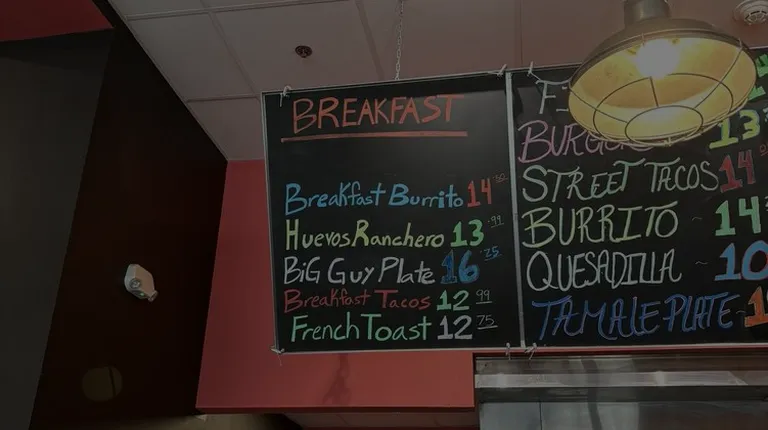 BREAKFAST
Breakfast Burrito 14 50
Huevos Ranchero 13 .99
BiG Guy Plate 16 .25
Breakfast Tacos 12 99
French Toast 12 75
STREET TACOS 14
BURRITO ~ 14
QUESADILLA ~ 10
TAMALE PLATE ~